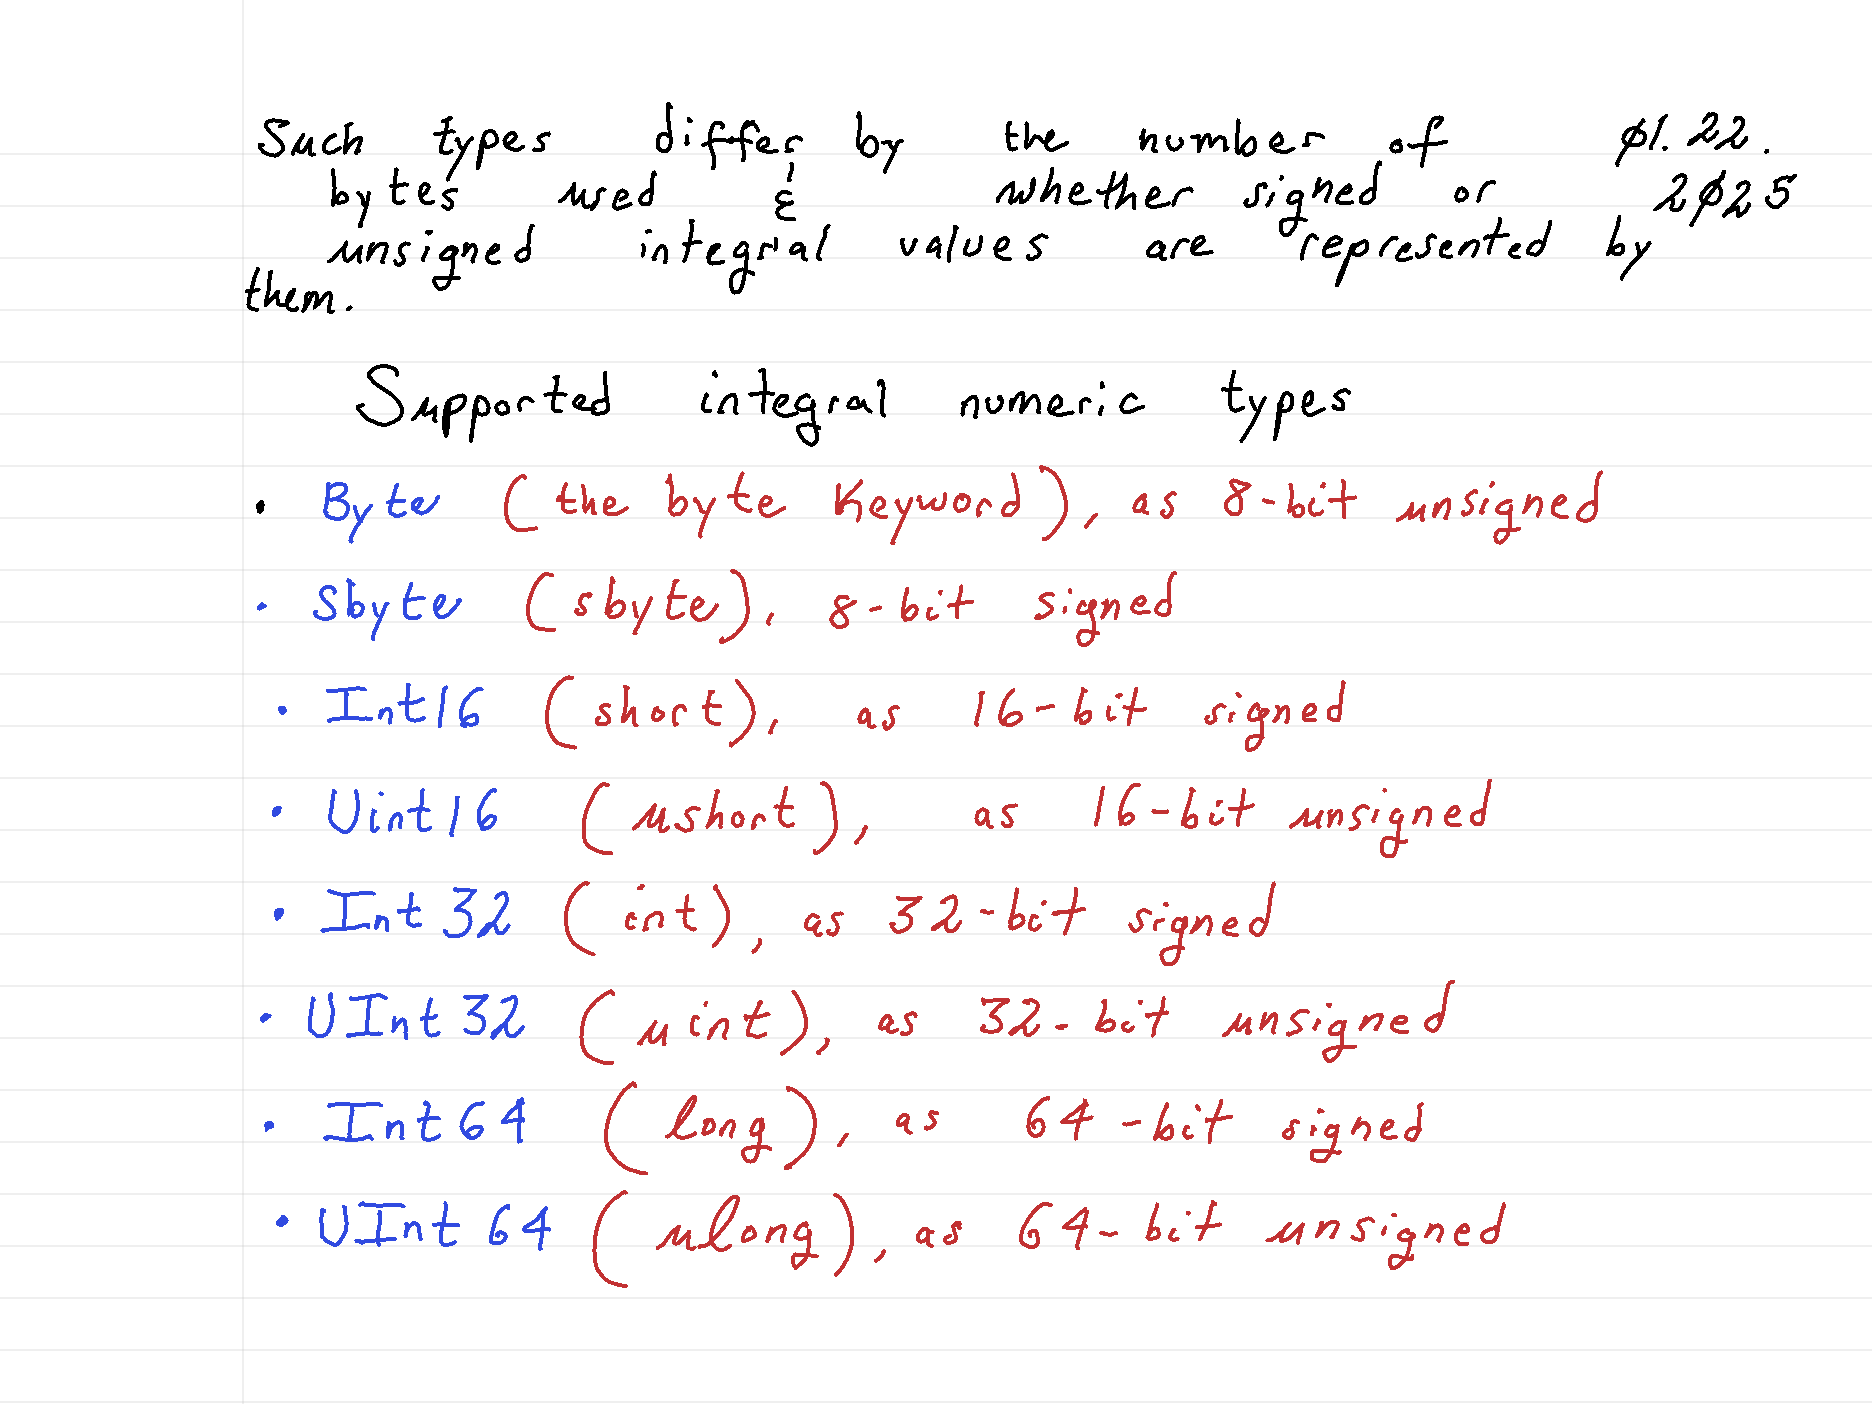 Such types differ by the number of ø1.22.
bytes used & whether signed or 2ø25
unsigned integral values are represented by
them.
Supported integral numeric types
• Byte (the byte keyword), as 8-bit unsigned
• Sbyte (sbyte), 8-bit signed
• Int16 (short), as 16-bit signed
• Uint16 (ushort), as 16-bit unsigned
• Int32 (int), as 32-bit signed
• UInt32 (uint), as 32-bit unsigned
• Int64 (long), as 64-bit signed
• UInt64 (ulong), as 64-bit unsigned